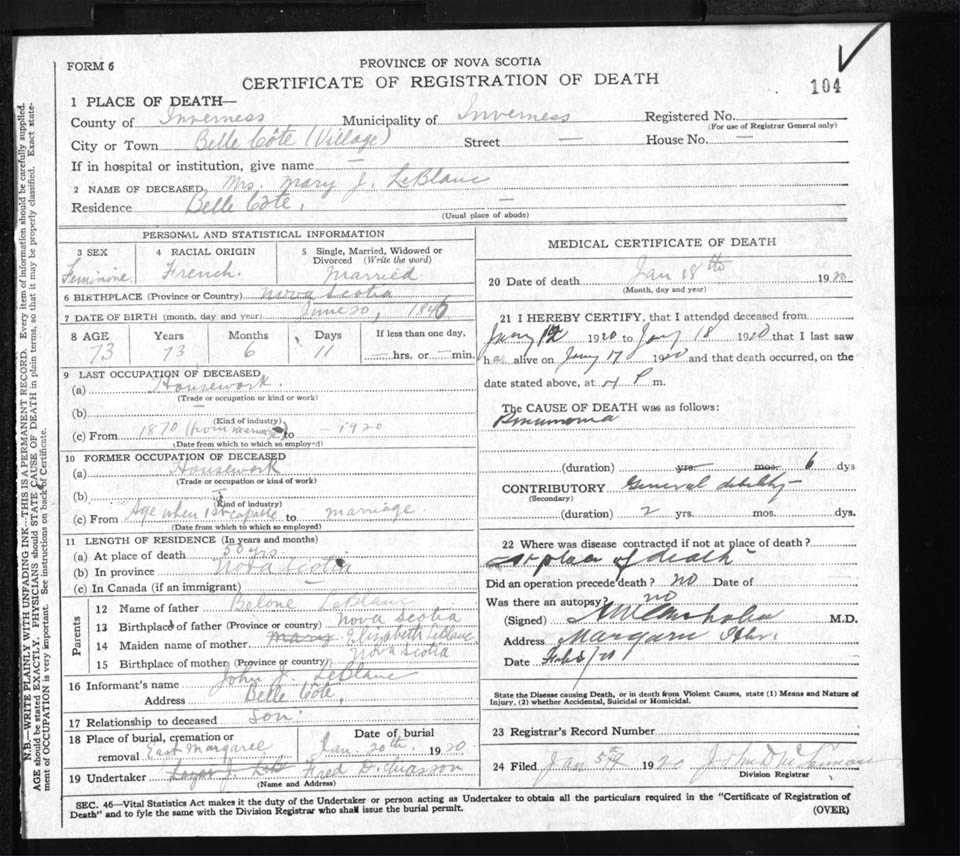 FORM 6
PROVINCE OF NOVA SCOTIA
CERTIFICATE OF REGISTRATION OF DEATH
104
1 PLACE OF DEATH—
County of Inverness Municipality of Inverness Registered No.
(For use of Registrar General only)
City or Town Belle Côte (Village) Street — House No. —
If in hospital or institution, give name —
2 NAME OF DECEASED Mrs. Mary J. LeBlanc
Residence Belle Côte, —
(Usual place of abode)
PERSONAL AND STATISTICAL INFORMATION
3 SEX Feminine
4 RACIAL ORIGIN French.
5 Single, Married, Widowed or Divorced (Write the word) Married.
6 BIRTHPLACE (Province or Country) Nova Scotia
7 DATE OF BIRTH (month, day and year) June 20, 1846
8 AGE Years Months Days If less than one day,
73 73 6 11 — hrs. or — min.
9 LAST OCCUPATION OF DECEASED
(a) Housework.
(Trade or occupation or kind or work)
(b) —
(Kind of industry)
(c) From 1870 (from marriage) to — 1920
(Date from which to which so employed)
10 FORMER OCCUPATION OF DECEASED
(a) Housework
(Trade or occupation or kind of work)
(b)
(Kind of industry)
(c) From Age when 1st capable to marriage.
(Date from which to which so employed)
11 LENGTH OF RESIDENCE (In years and months)
(a) At place of death 50 yrs.
(b) In province Nova Scotia
(c) In Canada (if an immigrant) —
Parents
12 Name of father Belone LeBlanc
13 Birthplace of father (Province or country) Nova Scotia
14 Maiden name of mother Mary Elizabeth LeBlanc
15 Birthplace of mother (Province or country) Nova Scotia
16 Informant's name John J. LeBlanc
Address Belle Côte,
17 Relationship to deceased Son.
18 Place of burial, cremation or removal East Margaree
Date of burial Jan. 20th, 1920
19 Undertaker Fred D.
(Name and Address)
MEDICAL CERTIFICATE OF DEATH
20 Date of death Jan 18th 1920
(Month, day and year)
21 I HEREBY CERTIFY, that I attended deceased from
Jany 12 1920 to Jany 18 1920 that I last saw
h alive on Jany 17 1920 and that death occurred, on the
date stated above, at 4 P m.
The CAUSE OF DEATH was as follows:
Pneumonia
(duration) yrs. mos. 6 dys
CONTRIBUTORY General debility
(Secondary)
(duration) 2 yrs. mos. dys.
22 Where was disease contracted if not at place of death?
At place of death
Did an operation precede death? no Date of
Was there an autopsy? no
(Signed) M.D.
Address Margaree
Date Feb
State the Disease causing Death, or in death from Violent Causes, state (1) Means and Nature of Injury, (2) whether Accidental, Suicidal or Homicidal.
23 Registrar's Record Number
24 Filed Jan 1920 John D
Division Registrar
SEC. 46—Vital Statistics Act makes it the duty of the Undertaker or person acting as Undertaker to obtain all the particulars required in the "Certificate of Registration of
Death" and to fyle the same with the Division Registrar who shall issue the burial permit. (OVER)
N.B.—WRITE PLAINLY WITH UNFADING INK—THIS IS A PERMANENT RECORD. Every item of information should be carefully supplied.
AGE should be stated EXACTLY. PHYSICIANS should STATE CAUSE OF DEATH in plain terms, so that it may be properly classified. Exact statement of OCCUPATION is very important. See instructions on back of Certificate.